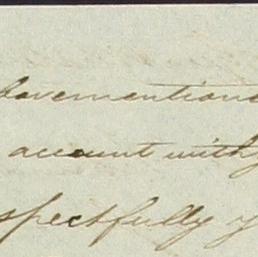 bovementione
account with
spectfully y